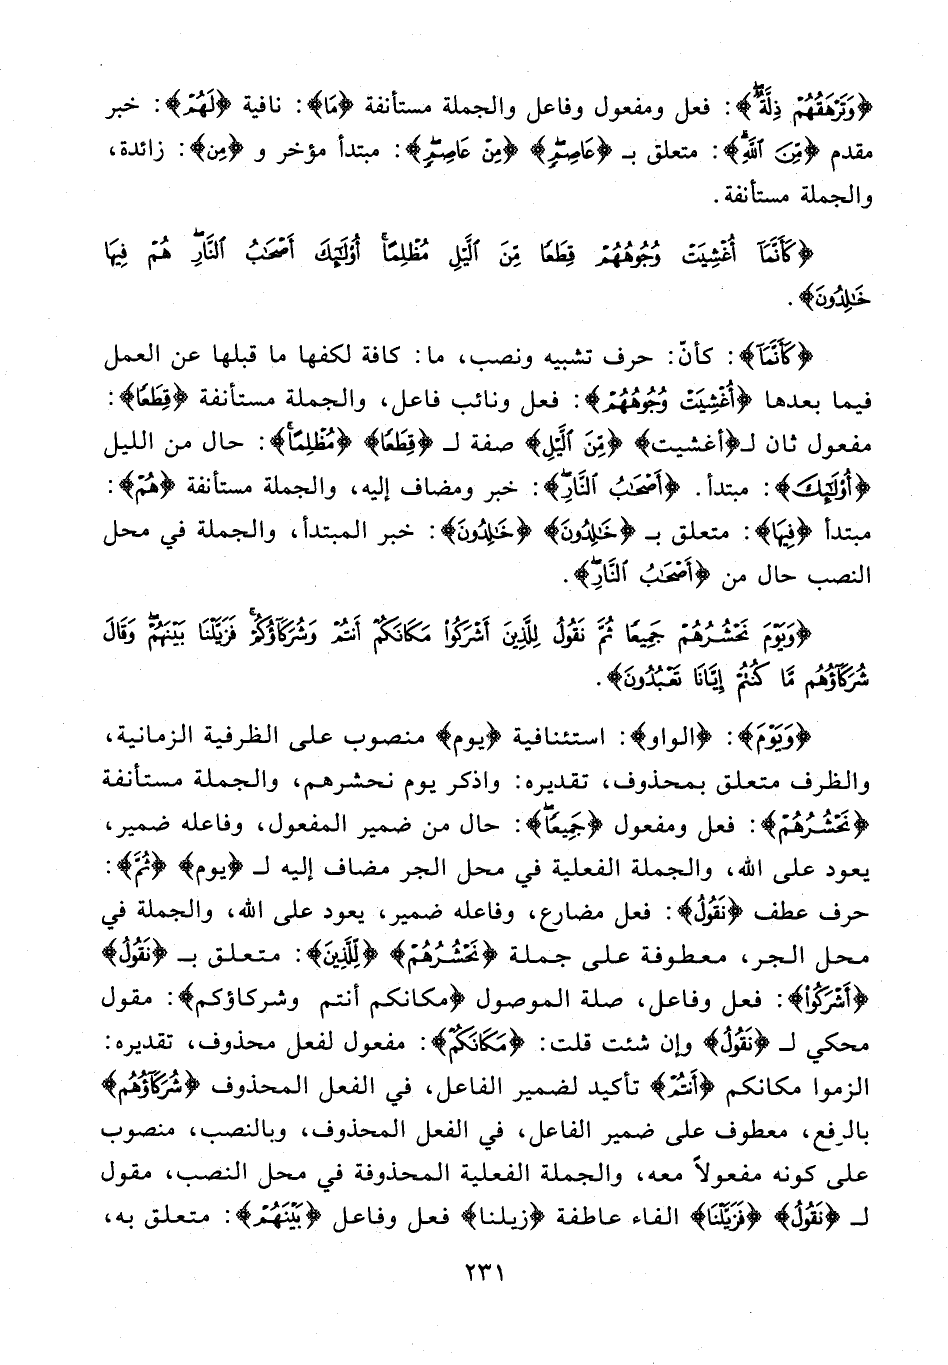 ﴿وَتَرْهَقُهُمْ ذِلَّةٌ﴾: فعل ومفعول وفاعل والجملة مستأنفة ﴿مَا﴾: نافية ﴿لَهُمْ﴾: خبر
مقدم ﴿مِّنَ ٱللَّهِ﴾: متعلق بـ ﴿عَاصِمٍ﴾ ﴿مِنْ عَاصِمٍ﴾: مبتدأ مؤخر و ﴿مِن﴾: زائدة،
والجملة مستأنفة.
﴿كَأَنَّمَآ أُغْشِيَتْ وُجُوهُهُمْ قِطَعًا مِّنَ ٱلَّيْلِ مُظْلِمًا أُوْلَٰٓئِكَ أَصْحَٰبُ ٱلنَّارِ هُمْ فِيهَا
خَٰلِدُونَ﴾.
﴿كَأَنَّمَآ﴾: كأنّ: حرف تشبيه ونصب، ما: كافة لكفها ما قبلها عن العمل
فيما بعدها ﴿أُغْشِيَتْ وُجُوهُهُمْ﴾: فعل ونائب فاعل، والجملة مستأنفة ﴿قِطَعًا﴾:
مفعول ثان لـ﴿أغشيت﴾ ﴿مِّنَ ٱلَّيْلِ﴾ صفة لـ ﴿قِطَعًا﴾ ﴿مُظْلِمًا﴾: حال من الليل
﴿أُوْلَٰٓئِكَ﴾: مبتدأ. ﴿أَصْحَٰبُ ٱلنَّارِ﴾: خبر ومضاف إليه، والجملة مستأنفة ﴿هُمْ﴾:
مبتدأ ﴿فِيهَا﴾: متعلق بـ ﴿خَٰلِدُونَ﴾ ﴿خَٰلِدُونَ﴾: خبر المبتدأ، والجملة في محل
النصب حال من ﴿أَصْحَٰبُ ٱلنَّارِ﴾.
﴿وَيَوْمَ نَحْشُرُهُمْ جَمِيعًا ثُمَّ نَقُولُ لِلَّذِينَ أَشْرَكُوا۟ مَكَانَكُمْ أَنتُمْ وَشُرَكَآؤُكُمْ فَزَيَّلْنَا بَيْنَهُمْ وَقَالَ
شُرَكَآؤُهُم مَّا كُنتُمْ إِيَّانَا تَعْبُدُونَ﴾.
﴿وَيَوْمَ﴾: ﴿الواو﴾: استئنافية ﴿يوم﴾ منصوب على الظرفية الزمانية،
والظرف متعلق بمحذوف، تقديره: واذكر يوم نحشرهم، والجملة مستأنفة
﴿نَحْشُرُهُمْ﴾: فعل ومفعول ﴿جَمِيعًا﴾: حال من ضمير المفعول، وفاعله ضمير،
يعود على الله، والجملة الفعلية في محل الجر مضاف إليه لـ ﴿يوم﴾ ﴿ثُمَّ﴾:
حرف عطف ﴿نَقُولُ﴾: فعل مضارع، وفاعله ضمير، يعود على الله، والجملة في
محل الجر، معطوفة على جملة ﴿نَحْشُرُهُمْ﴾ ﴿لِلَّذِينَ﴾: متعلق بـ ﴿نَقُولُ﴾
﴿أَشْرَكُوا۟﴾: فعل وفاعل، صلة الموصول ﴿مكانكم أنتم وشركاؤكم﴾: مقول
محكي لـ ﴿نَقُولُ﴾ وإن شئت قلت: ﴿مَكَانَكُمْ﴾: مفعول لفعل محذوف، تقديره:
الزموا مكانكم ﴿أَنتُمْ﴾ تأكيد لضمير الفاعل، في الفعل المحذوف ﴿شُرَكَآؤُهُم﴾
بالرفع، معطوف على ضمير الفاعل، في الفعل المحذوف، وبالنصب، منصوب
على كونه مفعولاً معه، والجملة الفعلية المحذوفة في محل النصب، مقول
لـ ﴿نَقُولُ﴾ ﴿فَزَيَّلْنَا﴾ الفاء عاطفة ﴿زيلنا﴾ فعل وفاعل ﴿بَيْنَهُمْ﴾: متعلق به،
٢٣١